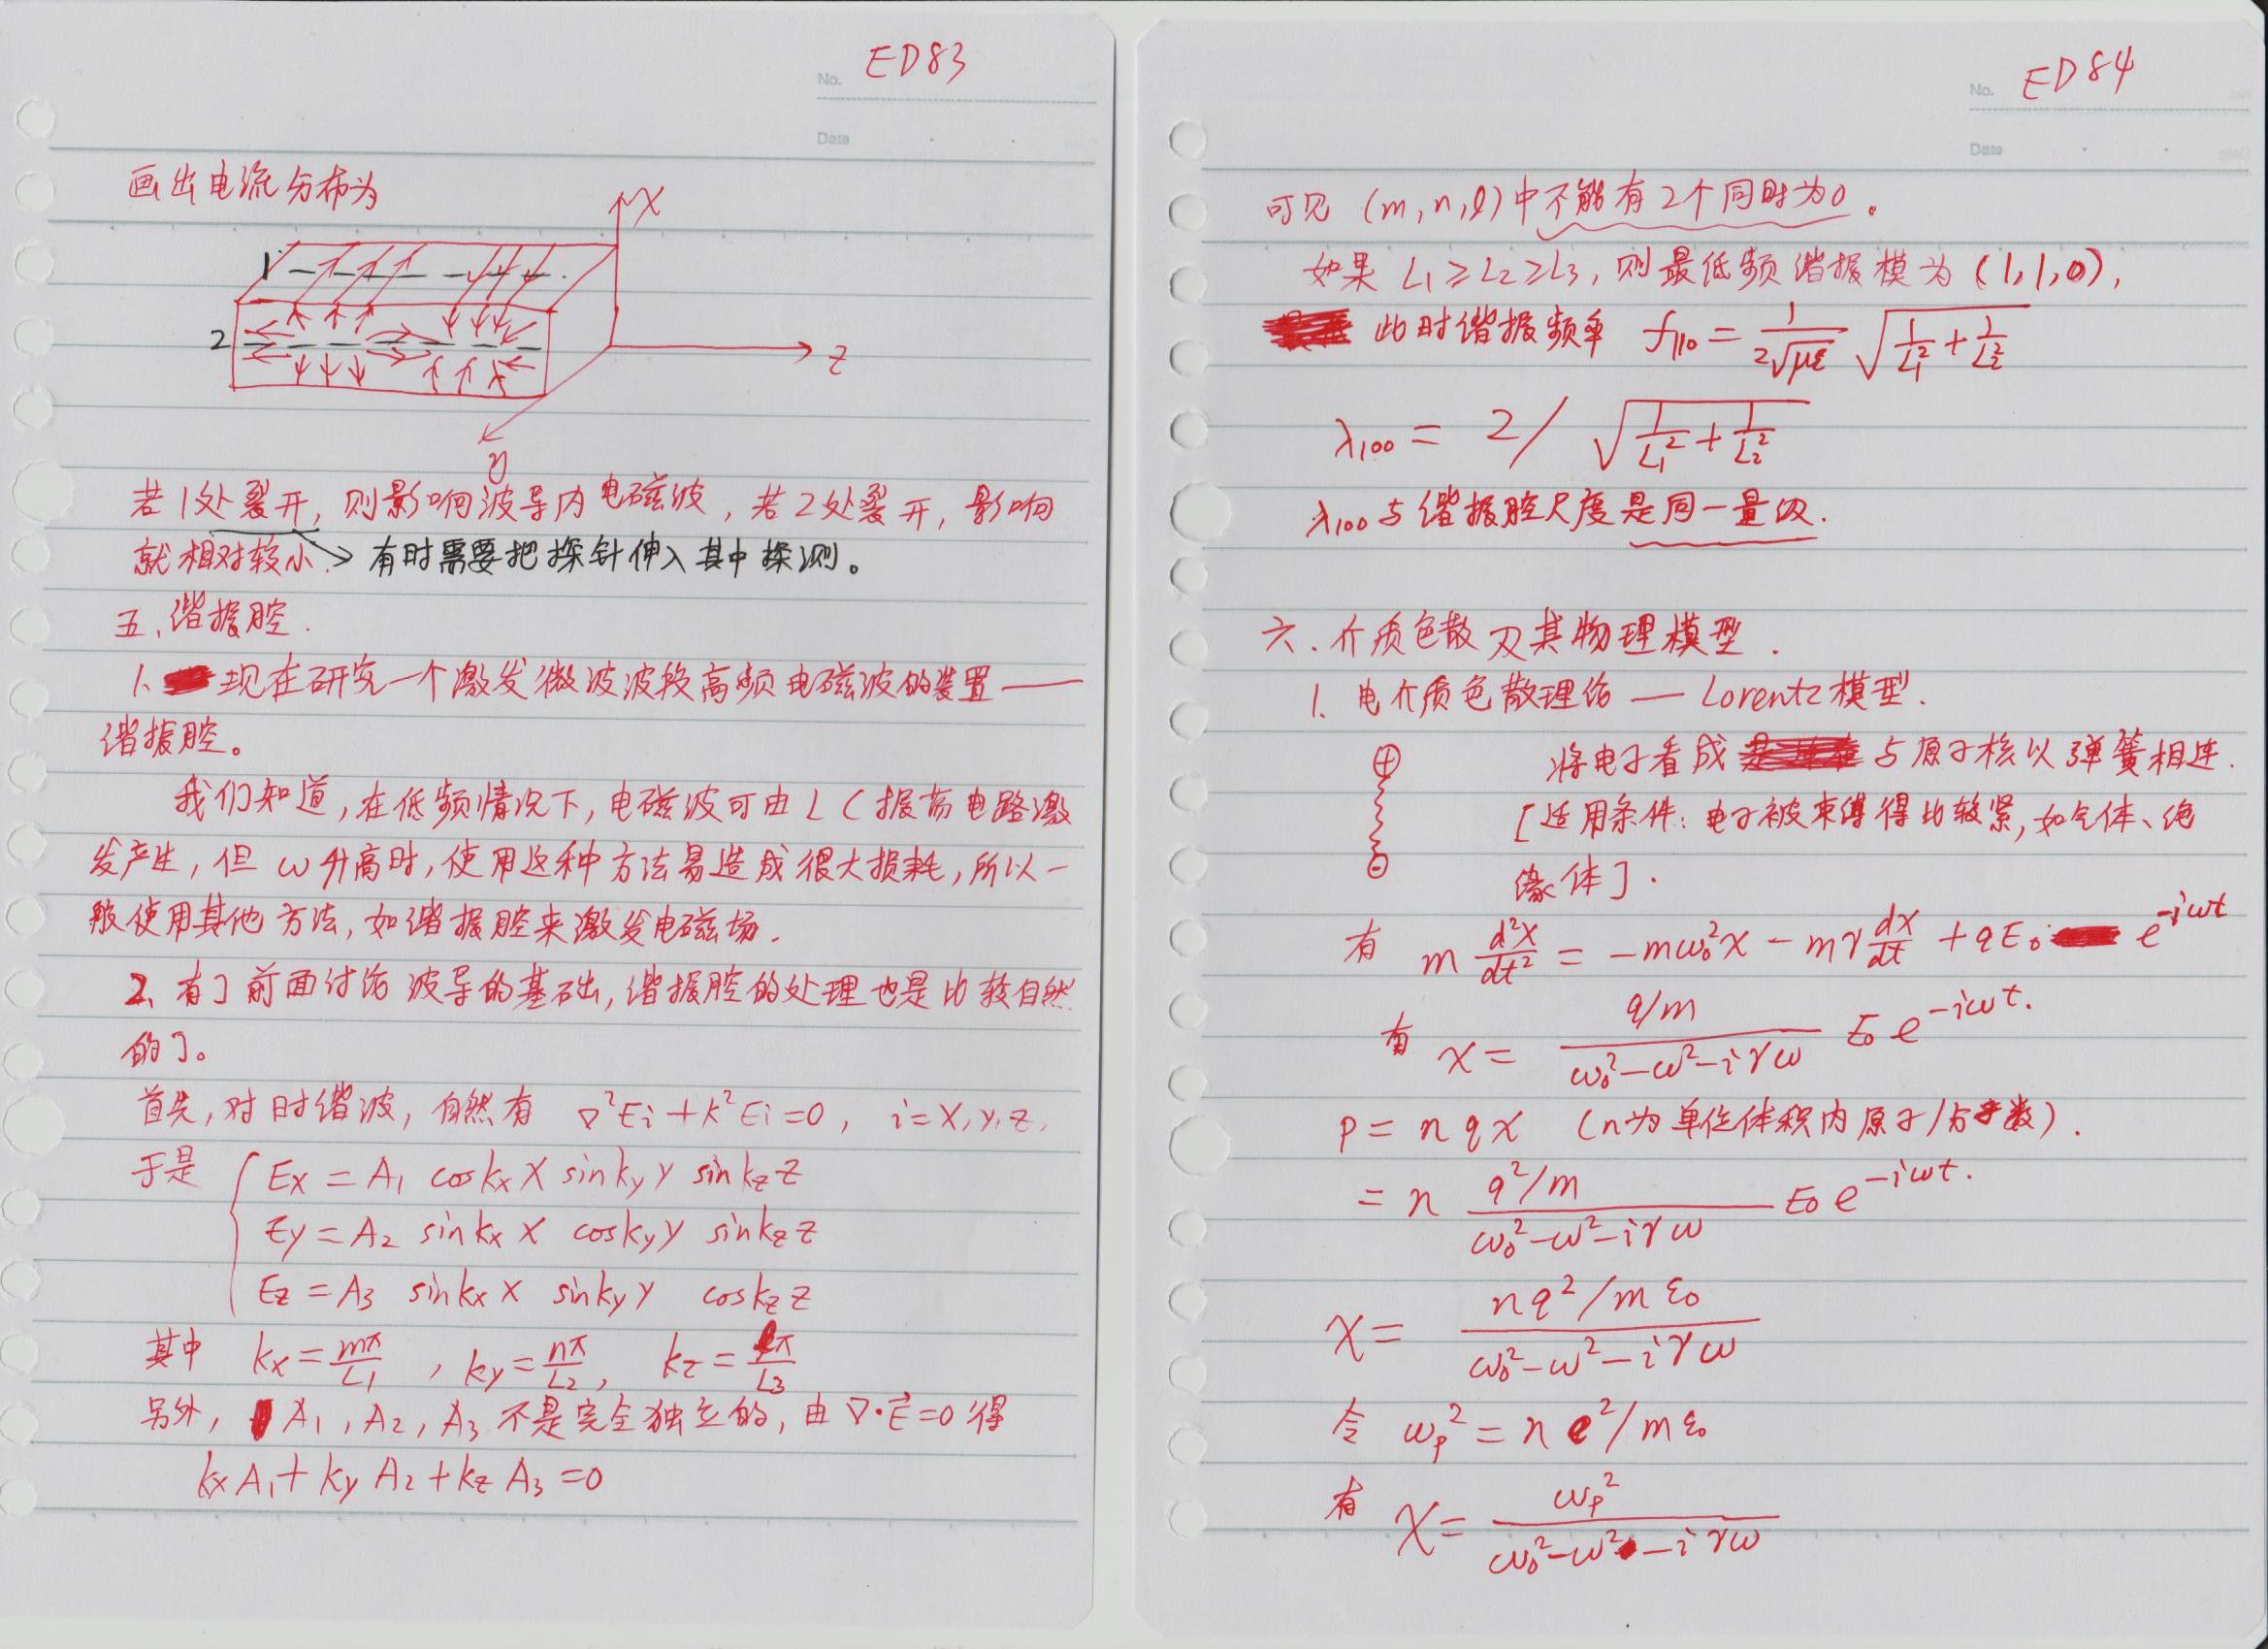 No. ED83
Date
画出电流分布为
x
1
2
z
y
若1处裂开,则影响波导内电磁波,若2处裂开,影响
就相对较小. → 有时需要把探针伸入其中探测。
五、谐振腔.
1. 现在研究一个激发微波波段高频电磁波的装置——
谐振腔。
我们知道,在低频情况下,电磁波可由LC振荡电路激
发产生,但ω升高时,使用这种方法易造成很大损耗,所以一
般使用其他方法,如谐振腔来激发电磁场.
2. 有了前面讨论波导的基础,谐振腔的处理也是比较自然
的了。
首先,对时谐波,自然有 ∇²Ei+k²Ei=0, i=x,y,z,
于是 { Ex = A₁ cos kx x sin ky y sin kz z
Ey = A₂ sin kx x cos ky y sin kz z
Ez = A₃ sin kx x sin ky y cos kz z
其中 kx = mπ/L₁ , ky = nπ/L₂, kz = lπ/L₃
另外, A₁, A₂, A₃ 不是完全独立的, 由 ∇·E⃗=0 得
kx A₁ + ky A₂ + kz A₃ = 0
No. ED84
Date
可见 (m,n,l) 中不能有2个同时为0。
如果 L₁≥L₂≥L₃, 则最低频谐振模为 (1,1,0),
此时谐振频率 f₁₁₀ = 1/(2√με) √(1/L₁² + 1/L₂²)
λ₁₀₀ = 2 / √(1/L₁² + 1/L₂²)
λ₁₀₀与谐振腔尺度是同一量级.
六. 介质色散及其物理模型.
1. 电介质色散理论 — Lorentz模型.
⊕ 将电子看成与原子核以弹簧相连.
[适用条件: 电子被束缚得比较紧, 如气体、绝
⊖ 缘体].
有 m d²x/dt² = -mω₀²x - mγ dx/dt + qE₀ e^{-iωt}
有 x = (q/m)/(ω₀²-ω²-iγω) E₀ e^{-iωt}.
P = nqx (n为单位体积内原子/分子数).
= n (q²/m)/(ω₀²-ω²-iγω) E₀ e^{-iωt}.
χ = (nq²/mε₀)/(ω₀²-ω²-iγω)
令 ωp² = ne²/mε₀
有 χ = ωp²/(ω₀²-ω²-iγω)